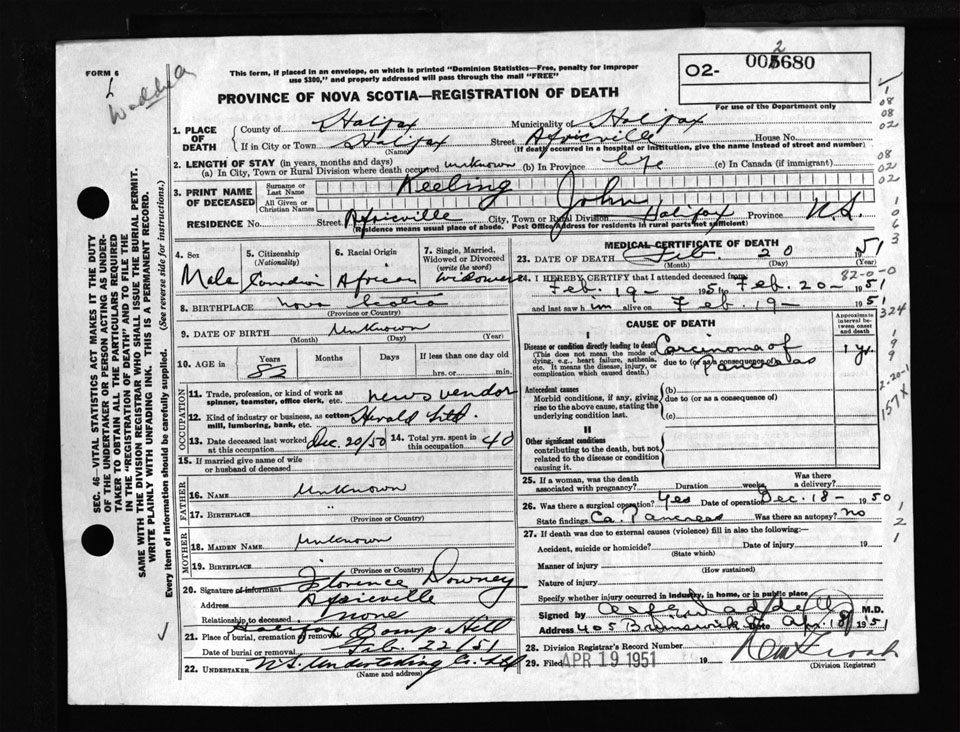 FORM 6
Waddell
This form, if placed in an envelope, on which is printed "Dominion Statistics—Free, penalty for improper
use $300", and properly addressed will pass through the mail "FREE"
PROVINCE OF NOVA SCOTIA—REGISTRATION OF DEATH
02- 2680
For use of the Department only
1. PLACE OF DEATH
County of Halifax Municipality of Halifax
If in City or Town Halifax Street Africville House No.
(Name) (If death occurred in a hospital or institution, give the name instead of street and number)
2. LENGTH OF STAY (in years, months and days)
(a) In City, Town or Rural Division where death occurred unknown (b) In Province life (c) In Canada (if immigrant)
3. PRINT NAME OF DECEASED
Surname or Last Name Keeling
All Given or Christian Names John
RESIDENCE No. Street Africville City, Town or Rural Division Halifax Province N.S.
(Residence means usual place of abode. Post Office Address for residents in rural parts not sufficient)
4. Sex Male
5. Citizenship (Nationality) Canadian
6. Racial Origin African
7. Single, Married, Widowed or Divorced (write the word) Widower
8. BIRTHPLACE Nova Scotia
(Province or Country)
9. DATE OF BIRTH Unknown
(Month) (Day) (Year)
10. AGE in Years Months Days If less than one day old
82 hrs. or min.
OCCUPATION
11. Trade, profession, or kind of work as spinner, teamster, office clerk, etc. news vendor
12. Kind of industry or business, as cotton mill, lumbering, bank, etc. Herald Ltd.
13. Date deceased last worked at this occupation Dec. 20/50
14. Total yrs. spent in this occupation 40
15. If married give name of wife or husband of deceased
FATHER
16. NAME Unknown
17. BIRTHPLACE "
(Province or Country)
MOTHER
18. MAIDEN NAME Unknown
19. BIRTHPLACE
(Province or Country)
20. Signature of informant Florence Downey
Address Africville
Relationship to deceased none
21. Place of burial, cremation or removal Camp Hill
Date of burial or removal Feb. 22/51
22. UNDERTAKER N.S. Undertaking Co. Ltd
(Name and address)
MEDICAL CERTIFICATE OF DEATH
23. DATE OF DEATH Feb. 20 1951
(Month) (Day) (Year)
24. I HEREBY CERTIFY that I attended deceased from 82-0-0
Feb. 19- 1951 to Feb. 20- 1951
and last saw him alive on Feb. 19- 1951
CAUSE OF DEATH
Approximate interval between onset and death
I
Disease or condition directly leading to death
(This does not mean the mode of dying, e.g., heart failure, asthenia, etc. It means the disease, injury, or complication which caused death.)
(a) Carcinoma of Pancreas 1 yr.
due to (or as a consequence of)
Antecedent causes
Morbid conditions, if any, giving rise to the above cause, stating the underlying condition last.
(b)
due to (or as a consequence of)
(c)
II
Other significant conditions
contributing to the death, but not related to the disease or condition causing it.
25. If a woman, was the death associated with pregnancy? Duration weeks Was there a delivery?
26. Was there a surgical operation? Yes Date of operation Dec. 18- 1950
State findings Ca. Pancreas Was there an autopsy? no
27. If death was due to external causes (violence) fill in also the following:—
Accident, suicide or homicide? Date of injury 19
(State which)
Manner of injury
(How sustained)
Nature of injury
Specify whether injury occurred in industry, in home, or in public place
Signed by Waddell M.D.
Address 405 Brunswick St Date Apr. 18 1951
28. Division Registrar's Record Number
29. Filed APR 19 1951 19
(Division Registrar)
SEC. 46—VITAL STATISTICS ACT MAKES IT THE DUTY
OF THE UNDERTAKER OR PERSON ACTING AS UNDERTAKER TO OBTAIN ALL THE PARTICULARS REQUIRED
IN THE "REGISTRATION OF DEATH" AND TO FILE THE
SAME WITH THE DIVISION REGISTRAR WHO SHALL ISSUE THE BURIAL PERMIT.
WRITE PLAINLY WITH UNFADING INK. THIS IS A PERMANENT RECORD.
Every item of information should be carefully supplied. (See reverse side for instructions.)
1
08
08
02
08
02
02
1
0
6
3
324
1
9
9
2-20-1
157X
1
2
1